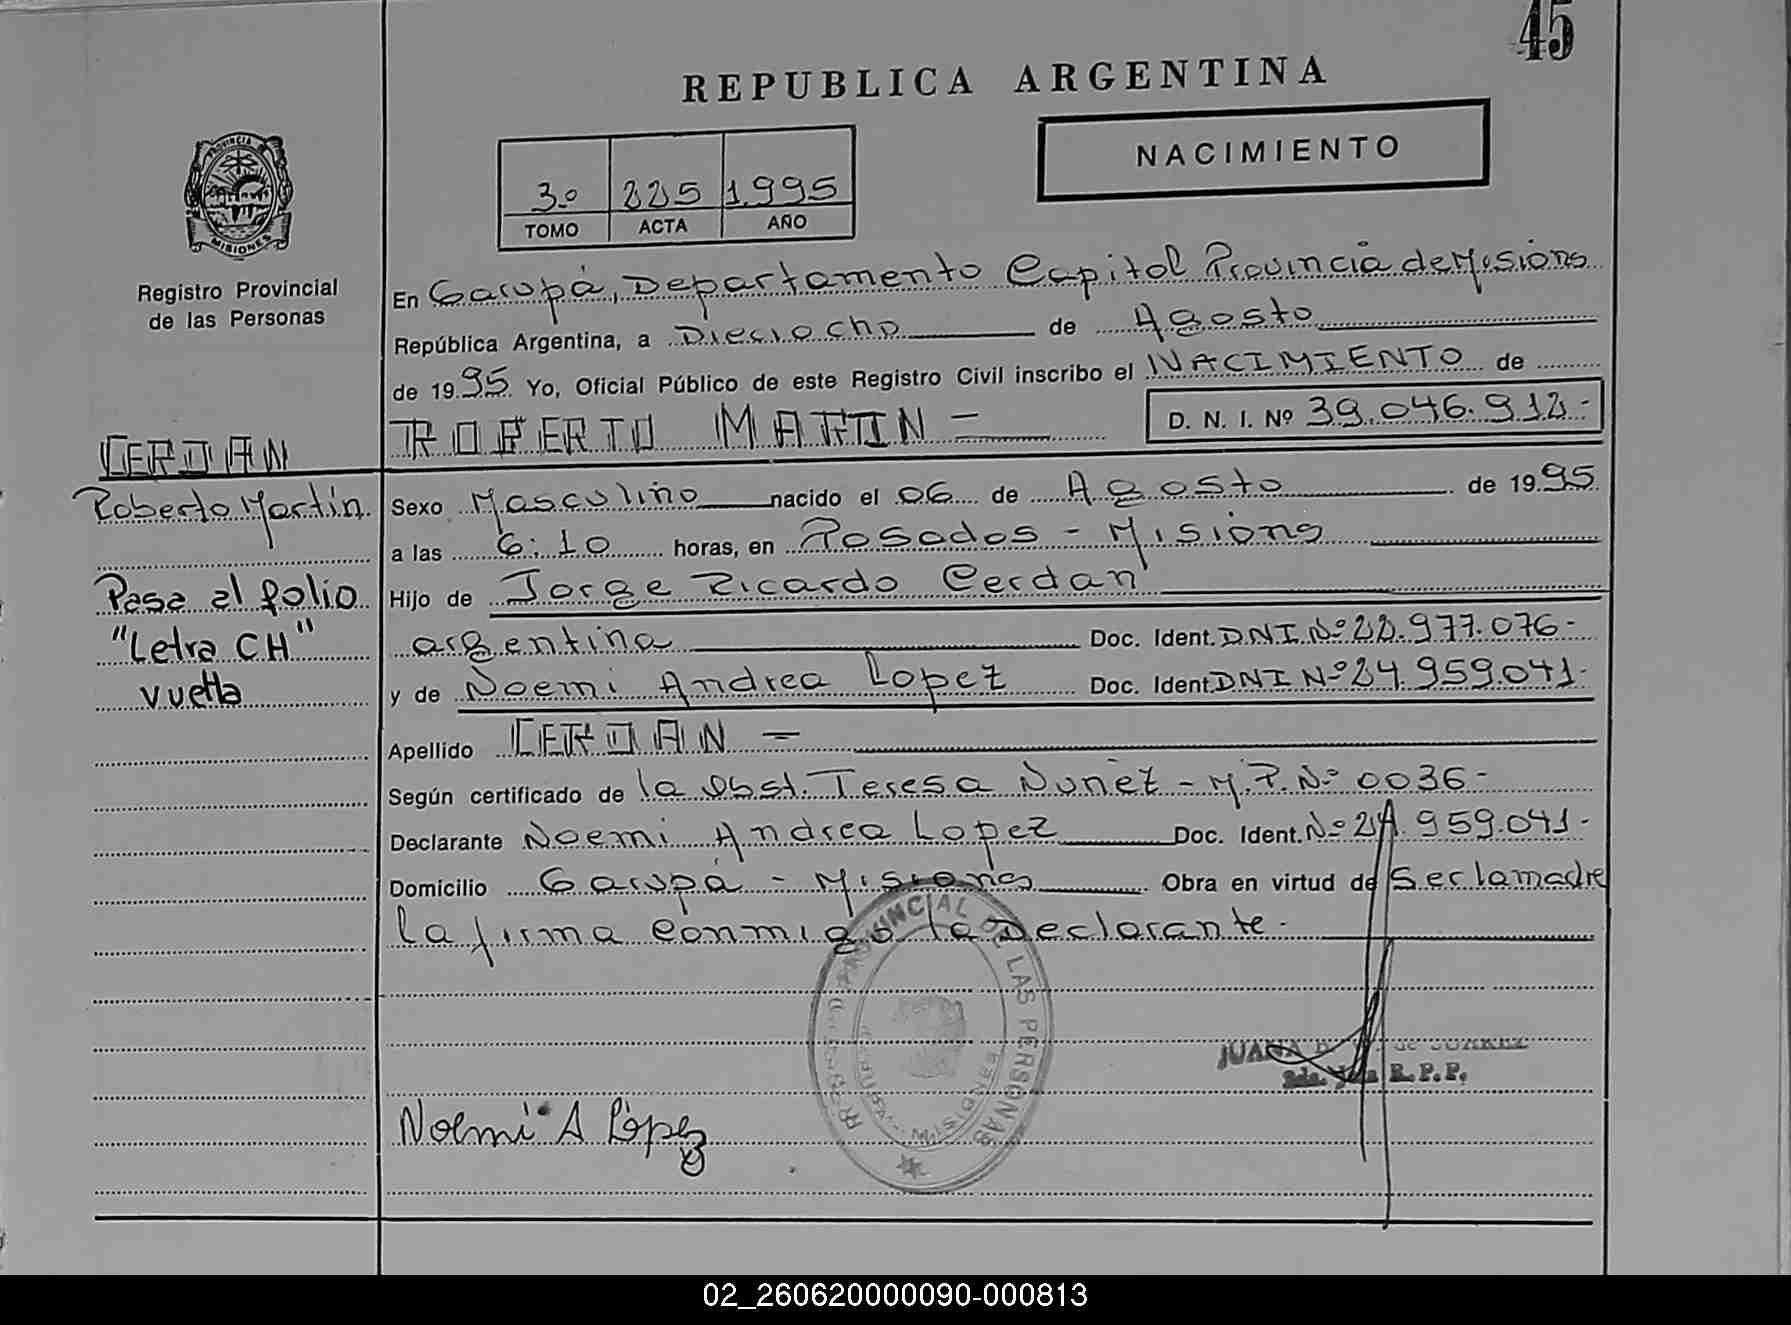 45
REPUBLICA ARGENTINA
NACIMIENTO
3º 225 1.995
TOMO ACTA AÑO
PROVINCIA DE
MISIONES
Registro Provincial
de las Personas
En Garupá, Departamento Capital Provincia de Misiones
República Argentina, a Dieciocho de Agosto
de 1995 Yo, Oficial Público de este Registro Civil inscribo el NACIMIENTO de
ROBERTO MARTIN - D. N. I. Nº 39.046.912-
CERDAN
Roberto Martín
Pasa al folio
"Letra CH"
vuelta
Sexo Masculino nacido el 06 de Agosto de 1995
a las 6:10 horas, en Posadas - Misiones
Hijo de Jorge Ricardo Cerdan
argentina Doc. Ident. DNI Nº 22.977.076-
y de Noemi Andrea Lopez Doc. Ident. DNI Nº 24.959.041-
Apellido CERDAN -
Según certificado de la Obst. Teresa Nuñez - M.P. Nº 0036-
Declarante Noemi Andrea Lopez Doc. Ident. Nº 24.959.041-
Domicilio Garupá - Misiones Obra en virtud de Ser la madre
la firma conmigo la Declarante.
PROVINCIAL DE LAS PERSONAS
MISIONES
JUANA de SUAREZ
R.P.P.
Noemi A López
02_260620000090-000813